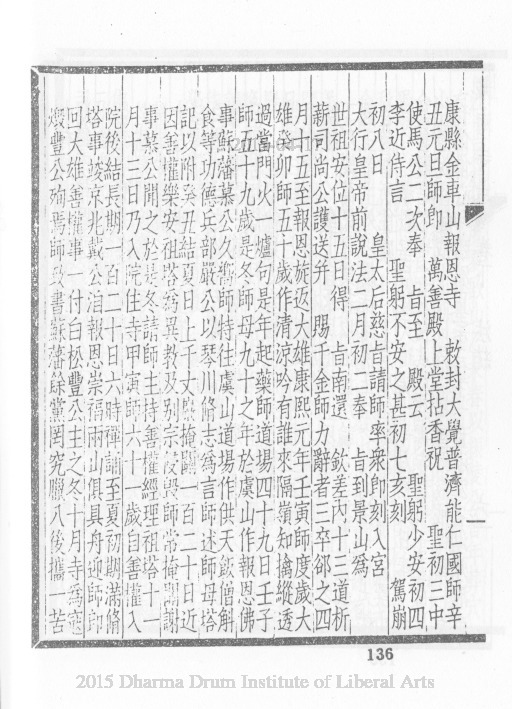 康縣金車山報恩寺 敕封大覺普濟能仁國師辛
丑元旦師卽 萬善殿上堂拈香祝 聖初三中
使馬公二次奉 旨至 殿云 聖躬少安初四
李近侍言 聖躬不安之甚初七亥刻 駕崩
初八日 皇太后慈旨請師率衆卽刻入宮
大行皇帝前說法二月初二奉 旨到景山爲
世祖安位十五日得 旨南還 欽差內十三道析
薪司尚公護送并 賜千金師力辭者三卒卻之四
月十五至報恩旋返大雄康熙元年壬寅師度歲大
雄癸卯師五十歲作清涼吟有誰來隔嶺知擒縱透
過當門火一爐句是年起藥師道場四十九日壬子
師五十九歲是冬師母九十之年於虞山作報恩佛
事蘇藩慕公久嚮師特往虞山道場作供天飯僧斛
食等功德兵部嚴公以琴川脩志爲言師述師母塔
記以附癸丑結夏日上千丈巖掩關一百二十日近
因善權樂安祖塔爲異教及別宗 毀師常掩關謝
事慕公聞之於是冬請師主持善權經理祖塔十一
月十三日乃入院住寺甲寅師六十一歲自善權入
院後結長期一百二十日六時禪誦至夏初期滿脩
塔事竣京兆戴公洎報恩崇福兩山俱具舟迎師師
回大雄善權事一付白松豐公主之冬十月寺爲
燬豐公殉焉師 書蘇藩餘黨罔究臘八後攜一苦
136
2015 Dharma Drum Institute of Liberal Arts